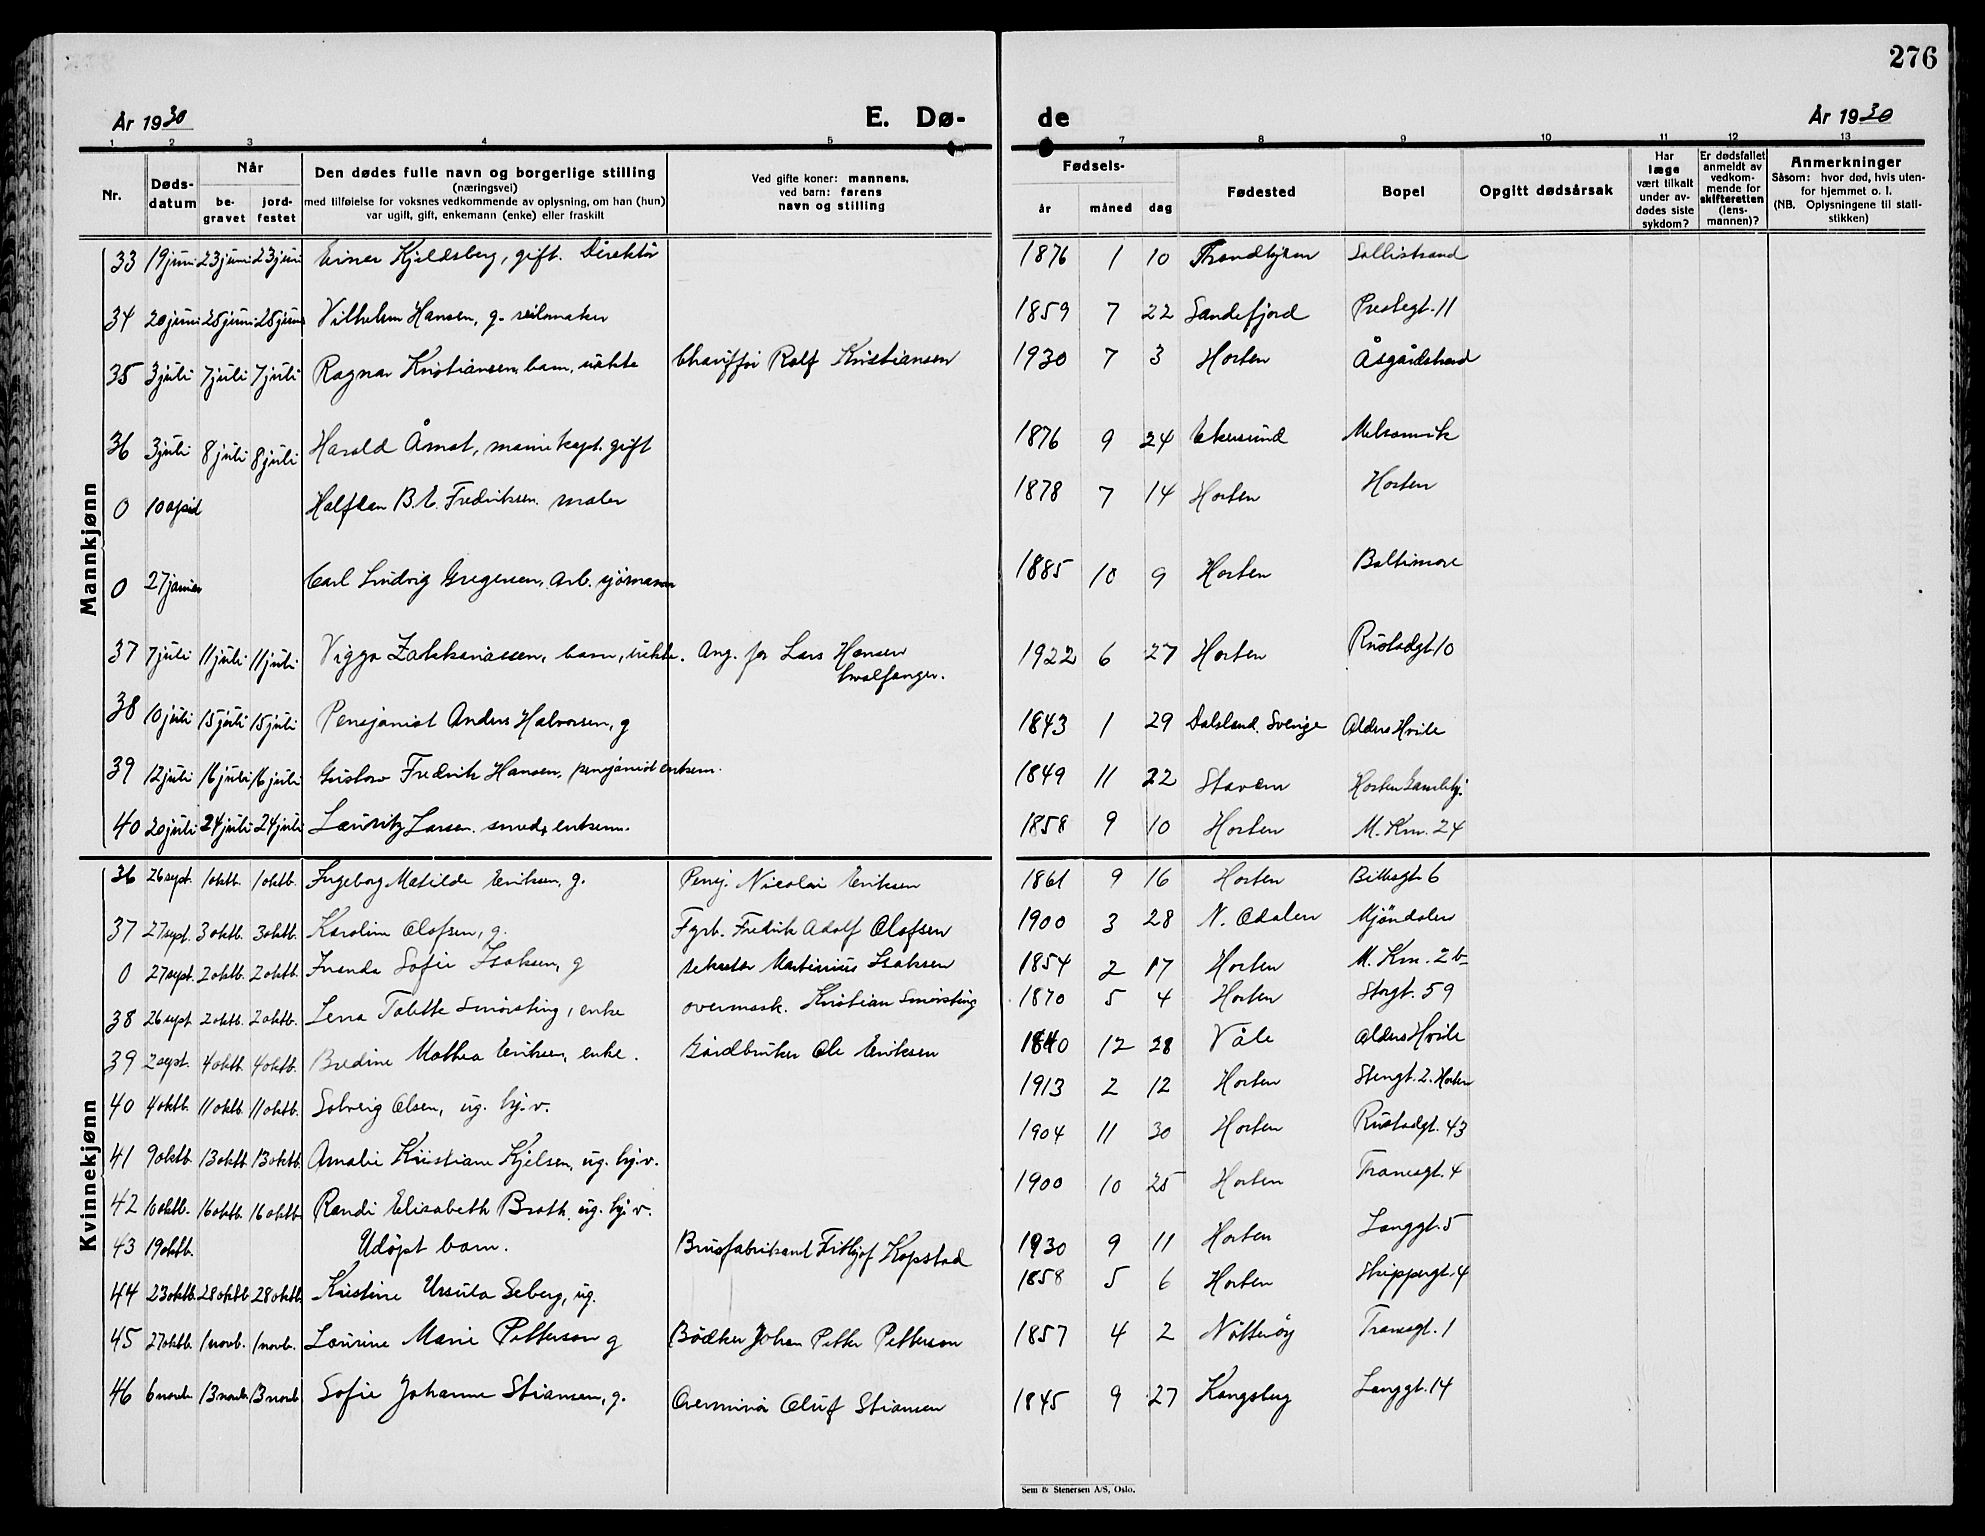 276
År 1930 E. Dø- de År 1930
1 2 3 4 5 7 8 9 10 11 12 13
Nr. Døds-datum Når be-gravet jord-festet Den dødes fulle navn og borgerlige stilling (næringsvei) med tilføielse for voksnes vedkommende av oplysning, om han (hun) var ugift, gift, enkemann (enke) eller fraskilt Ved gifte koner: mannens, ved barn: farens navn og stilling Fødsels- år måned dag Fødested Bopel Opgitt dødsårsak Har læge vært tilkalt under av-dødes siste sykdom? Er dødsfallet anmeldt av vedkom-mende for skifteretten (lens-mannen)? Anmerkninger Såsom: hvor død, hvis uten-for hjemmet o. l. (NB. Oplysningene til stati-stikken)
Mannkjønn
33 19 juni 23 juni 23 juni Einar Kjeldsberg, gift. Direktør 1876 1 10 Trondhjem Sollistrand
34 20 juni 25 juni 25 juni Vilhelm Hansen, g. seilmaker 1859 7 22 Sandefjord Prestegt. 11
35 3 juli 7 juli 7 juli Ragnar Kristiansen, barn, uekte Chauffør Rolf Kristiansen 1930 7 3 Horten Åsgårdstrand
36 3 juli 8 juli 8 juli Harald Åmot, marinekapt. gift 1876 9 24 Ekersund Melsomvik
0 10 april Halfdan B. E. Fredriksen. maler 1878 7 14 Horten Horten
0 27 januar Carl Ludvig Gregersen, Arb. sjömann 1885 10 9 Horten Baltimore
37 7 juli 11 juli 11 juli Viggo Zakkariassen, barn, uekte. Ang. far Lars Hansen
hvalfanger. 1922 6 27 Horten Rustadgt 10
38 10 juli 15 juli 15 juli Pensjonist Anders Halvorsen, g 1843 1 29 Dalsland. Sverige Alders Hvile
39 12 juli 16 juli 16 juli Gustav Fredrik Hansen, pensjonist enkem. 1849 11 22 Stavern Horten Gamlehj.
40 20 juli 24 juli 24 juli Lauritz Larsen. smed, enkem. 1858 9 10 Horten M. Km. 24
Kvinnekjønn
36 26 sept. 1 oktb. 1 oktb. Ingeborg Matilde Eriksen, g. Pensj. Nicolai Eriksen 1861 9 16 Horten Billesgt. 6
37 27 sept. 3 oktb. 3 oktb. Karoline Olafsen, g. Fyrb. Fredrik Adolf Olafsen 1900 3 28 N. Odalen Mjöndalen
0 27 sept. 2 oktb. 2 oktb. Sofie Isaksen, g Martinius Isaksen 1854 2 17 Horten M. Km. 2 b
38 26 sept 2 oktb. 2 oktb. Lena Talette Smörsting, enke overmask. Kristian Smörsting 1870 5 4 Horten Storgt. 59
39 2 sept. 4 oktb. 4 oktb. Bredine Mathea Eriksen, enke. Gårdbruker Ole Eriksen 1840 12 28 Våle Alders Hvile
40 4 oktb. 11 oktb. 11 oktb. Solveig Olsen, ug. hj.v. 1913 2 12 Horten Stengt. 2. Horten
41 9 oktb. 13 oktb. 13 oktb. Amalie Kristiane Kjelsen, ug. hj.v. 1904 11 30 Horten Rustadgt. 43
42 10 oktb. 16 oktb. 16 oktb. Randi Elisabeth Broth, ug. hj.v. 1900 10 25 Horten Tranesgt. 4
43 19 oktb. Udöpt barn. Brusfabrikant Fithjof Kopstad 1930 9 11 Horten Langgt. 5
44 23 oktb. 28 oktb. 28 oktb. Kristine Ursula Seberg, ug. 1858 5 6 Horten Skippergt. 4
45 27 oktb. 1 novb. 1 novb. Laurine Marie Petterson g Bödker Johan Petter Petterson 1857 4 2 Nötteröy Tranesgt. 1
46 6 novb 13 novb 13 novb Sofie Johanne Stiansen, g. Overminör Oluf Stiansen 1845 9 27 Kongsberg Langgt. 14
Sem & Stenersen A/S, Oslo.